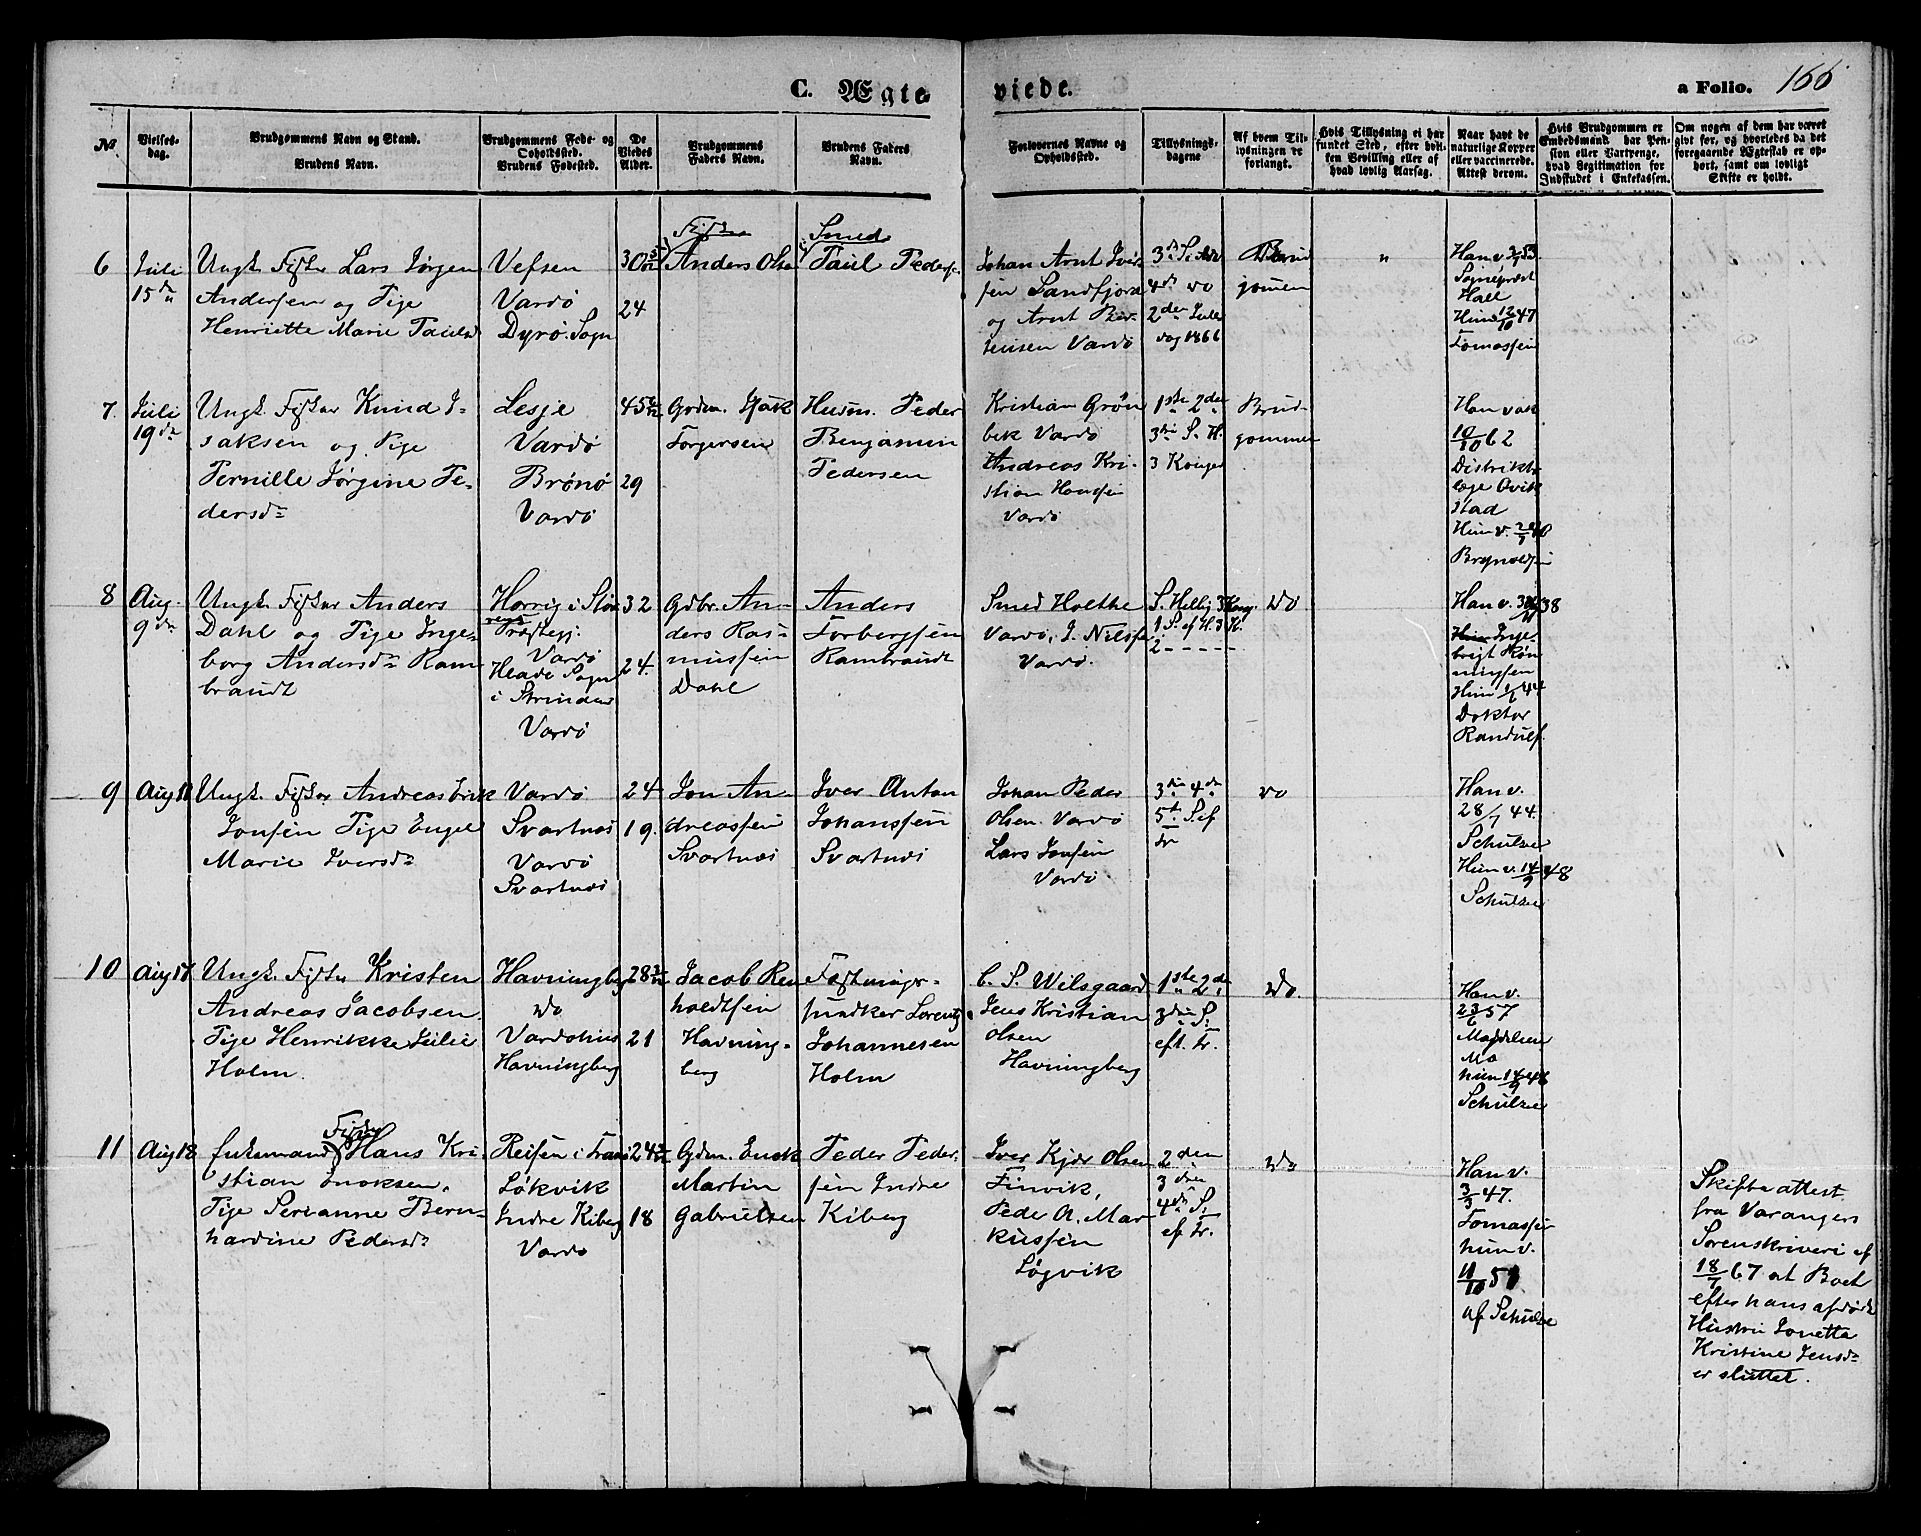 C. Ægte
viede.
a Folio. 166
№
Vielses-
dag.
Brudgommens Navn og Stand.
Brudens Navn.
Brudgommens Føde- og
Opholdssted.
Brudens Fødested.
De
Viedes
Alder.
Brudgommens
Faders Navn.
Brudens Faders
Navn.
Forlovernes Navne og
Opholdssted.
Tillysnings-
dagene
Af hvem Til-
lysningen er
forlangt.
Hvis Tillysning ei har
fundet Sted, efter hvil-
ken Bevilling eller af
hvad lovlig Aarsag.
Naar havt de
naturlige Kopper
eller vaccinerede.
Attest derom.
Hvis Brudgommen er
Embedsmand, har Pen-
sion eller Vartpenge,
hvad Legitimation for
Indskudet i Enkekassen.
Om nogen af dem har været
givt før, og hvorledes da det
foregaaende Ægteskab er op-
hørt, samt om lovligt
Skifte er holdt.
6
Juli
15de
Ungk. Fisker Lars Jørgen
Andersen og Pige
Henriette Marie Paulsd
Vefsen
Vardø
Dyrø Sogn
30
24
Fisker
Anders Olsen
Smed
Paul Peders.
Johan Arnt Iver
sen Sandfjord
og Arnt Ber-
Vardø
3die S.
4de do
2den Jule
dag 1866
Brud
gommen
"
Han v.
Sognepræst
Hall
Hun 12/10 47
Tomassen
7.
Juli
19de
Ungk. Fisker Knud I-
saksen og Pige
Pernille Jørgine Pe-
dersd.
Lesje
Vardø
Brønø
Vardø
45
29
Grdm. Isak
Torgersen
Husm. Peder
Benjamin
Pedersen
Kristian Grøn
bek Vardø
Andreas Kri-
stian Hansen
Vardø
1ste 2den
3die S. H.
3 Konger
Brud-
gommen
Han vac
10/10 62
Distrikts
læge Qvik
stad
Hun v.
Brynoldsen
8
Aug.
9de
Ungk. Fisker Anders
Dahl og Pige Inge-
borg Andersd. Ram
brandt
Horrig i Stø
rens
Præstegj.
Vardø
Hlade Sogn
i Strinden
Vardø
32
24.
Gdbr. An-
ders Ras-
mussen
Dahl
Anders
Torbergsen
Rambrandt
Smed Holthe
Vardø, J. Nilssen
Vardø.
S. Hellig 3 Kong.
1 S. ef H. 3 K.
2 - - - - -
Do
Han v. 38
Inge
brigt Røn
ningsen
Hun 44.
Doktor
Randulf.
9
Aug 11
Ungk. Fisker Andreas Erik
Jonsen Pige Engel
Marie Iversd.
Vardø
Svartnæs
Vardø
Svartnæs
24
19.
Jon An-
dreassen
Svartnæs
Iver Anton
Johanssen
Svartnæs
Johan Peder
Olsen Vardø
Lars Jonsen
Vardø
3die 4de
5te S ef
tr
do
Han v.
28/7 44.
Schulze
Hun v. 14/9 48
Schulze
10
Aug 17
Ungk. Fisker Kristen
Andreas Jacobsen
Pige Henrikke Julie
Holm.
Havningberg
do
Vardøhus
Havningberg
28
21
Jacob Ren
holdtsen
Havning-
berg
Fæstnings-
junker Lorentz
Johannesen
Holm
C. S. Wilsgaard
Jens Kristian
Olsen
Havningberg
1ste 2den
3die S.
eft. tr.
Do.
Han v.
23/6 57
Mo
hun 14/9 46
Schulze
11
Aug 18
Enkemand Fisker Hans Kri-
stian Enoksen,
Pige Perianne Bern-
hardine Pedersd.
Reisen i
Løkvik
Indre Kiberg
Vardø
24
18
Gdm. Enok
Martin
Gabrielsen
Peder Peder-
sen Indre
Kiberg
Iver Kjær Olsen
Finvik,
Peder A. Mar-
kussen
Løgvik
2den
3die
4de S.
ef tr.
Do
Han v.
3/3 47.
Tomassen
hun v.
11/10 51
af Schulze
Skifteattest
fra Varangers
Sorenskriveri af
18/7 67 at Boet
efter hans afdøde
Hustru Jonetta
Kristine Jensd.
er sluttet.